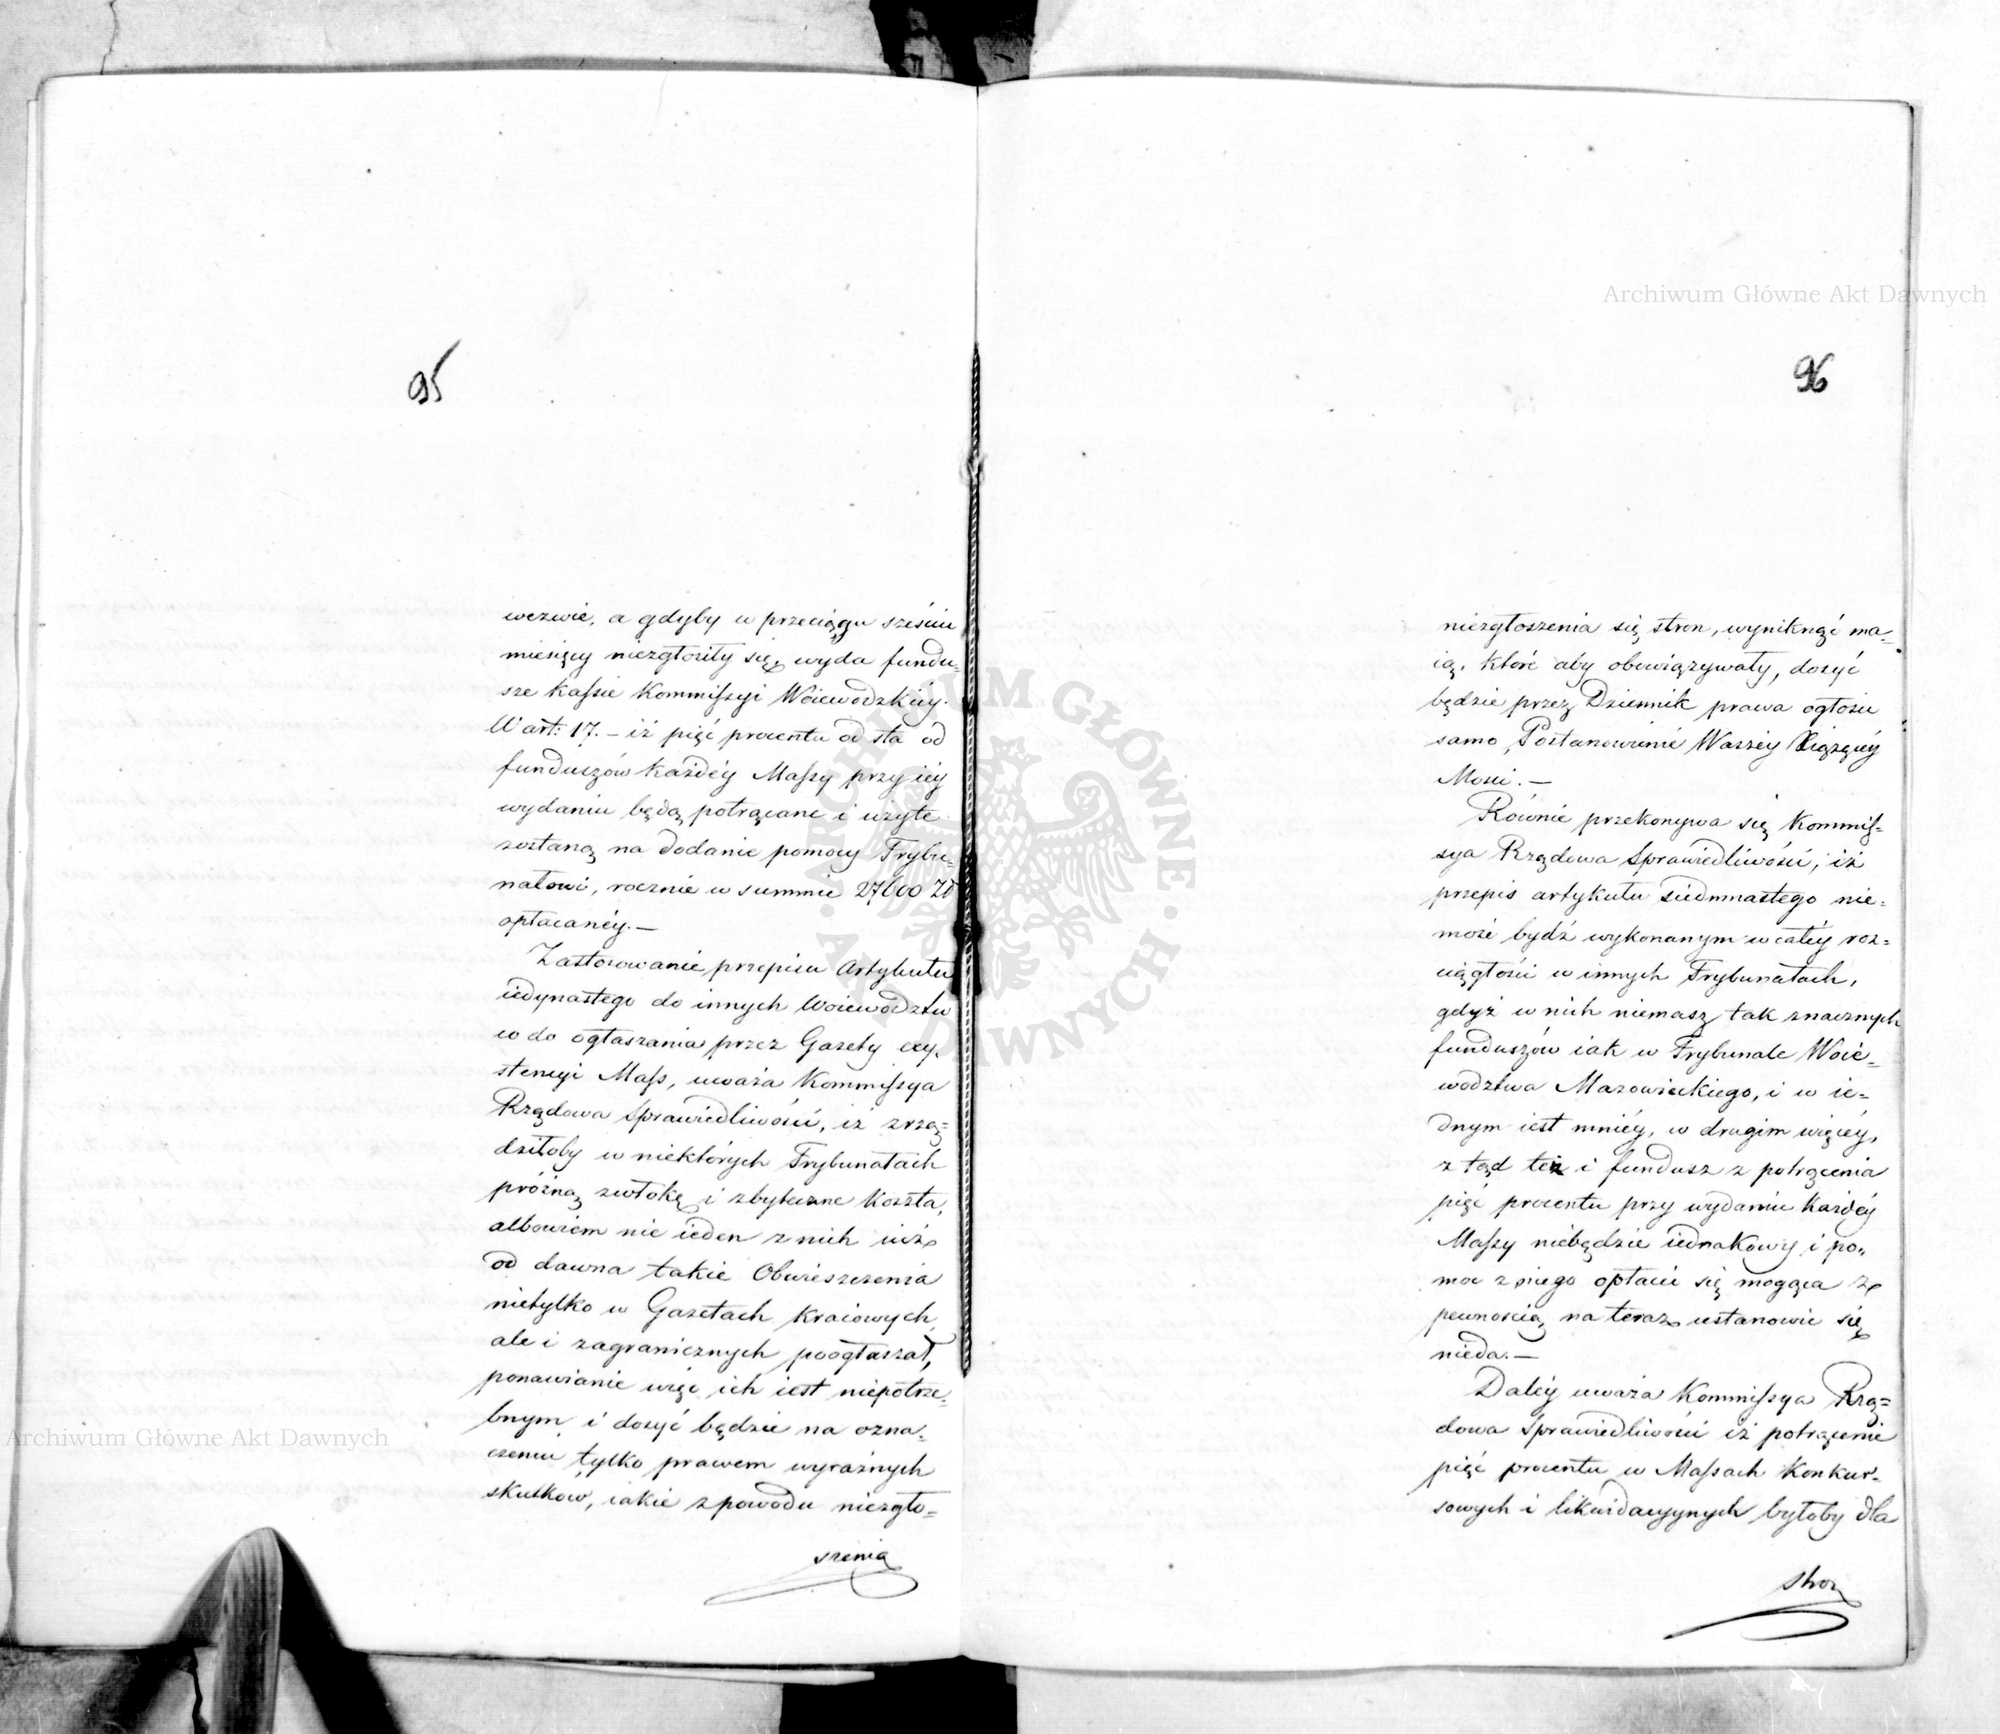 95
wezwie, a gdyby w przeciągu sześciu
miesięcy niezgłosiły się, wyda fundu-
sze kassie Kommissyi Woiewodzkiéy.
W art: 17. – iż pięć procentu od sta od
funduszów każdéy Massy przy iéy
wydaniu będą potrącane i użyte
zostaną na dodanie pomocy Trybu-
nałowi, rocznie w summie 27600 Zł
opłacanéy. —
Zastosowanie przepisu Artykułu
iedynastego do innych Woiewodztw
co do ogłaszania przez Gazety exy-
stencyi Mass, uważa Kommissya
Rządowa Sprawiedliwości, iż zrzą=
dziłoby w niektórych Trybunałach
próżną zwłokę i zbyteczne koszta,
albowiem nie ieden z nich iuż
od dawna takie Obwieszczenia
nietylko w Gazetach kraiowych,
ale i zagranicznych poogłaszał,
ponawianie więc ich iest niepotrze-
bnym i dosyć będzie na ozna-
czeniu tylko prawem wyraźnych
skutków, iakie z powodu niezgło=
szenia
96
niezgłoszenia się stron, wyniknąć ma-
ią, któré aby obowiązywały, dosyć
będzie przez Dziennik prawa ogłosić
samo Postanowienie Waszéy Xiążęcéy
Mości. —
Równie przekonywa się Kommis-
sya Rządowa Sprawiedliwości, iż
przepis artykułu siedmnastego nie=
może bydź wykonanym w całéy roz=
ciągłości w innych Trybunałach,
gdyż w nich niemasz tak znacznych
funduszów iak w Trybunale Woie-
wodztwa Mazowieckiego, i w ie=
dnym iest mniéy, w drugim więcéy,
z tąd też i fundusz z potrącenia
pięć procentu przy wydaniu każdéy
Massy niebędzie iednakowy, i po-
moc z niego opłacić się mogąca z
pewnością na teraz ustanowić się
nieda. —
Daléy uważa Kommissya Rzą=
dowa Sprawiedliwości iż potrącenie
pięć procentu w Massach Konkur-
sowych i likwidacyynych byłoby dla
stron
Archiwum Główne Akt Dawnych
Archiwum Główne Akt Dawnych
ARCHIWUM GŁÓWNE · AKT DAWNYCH ·